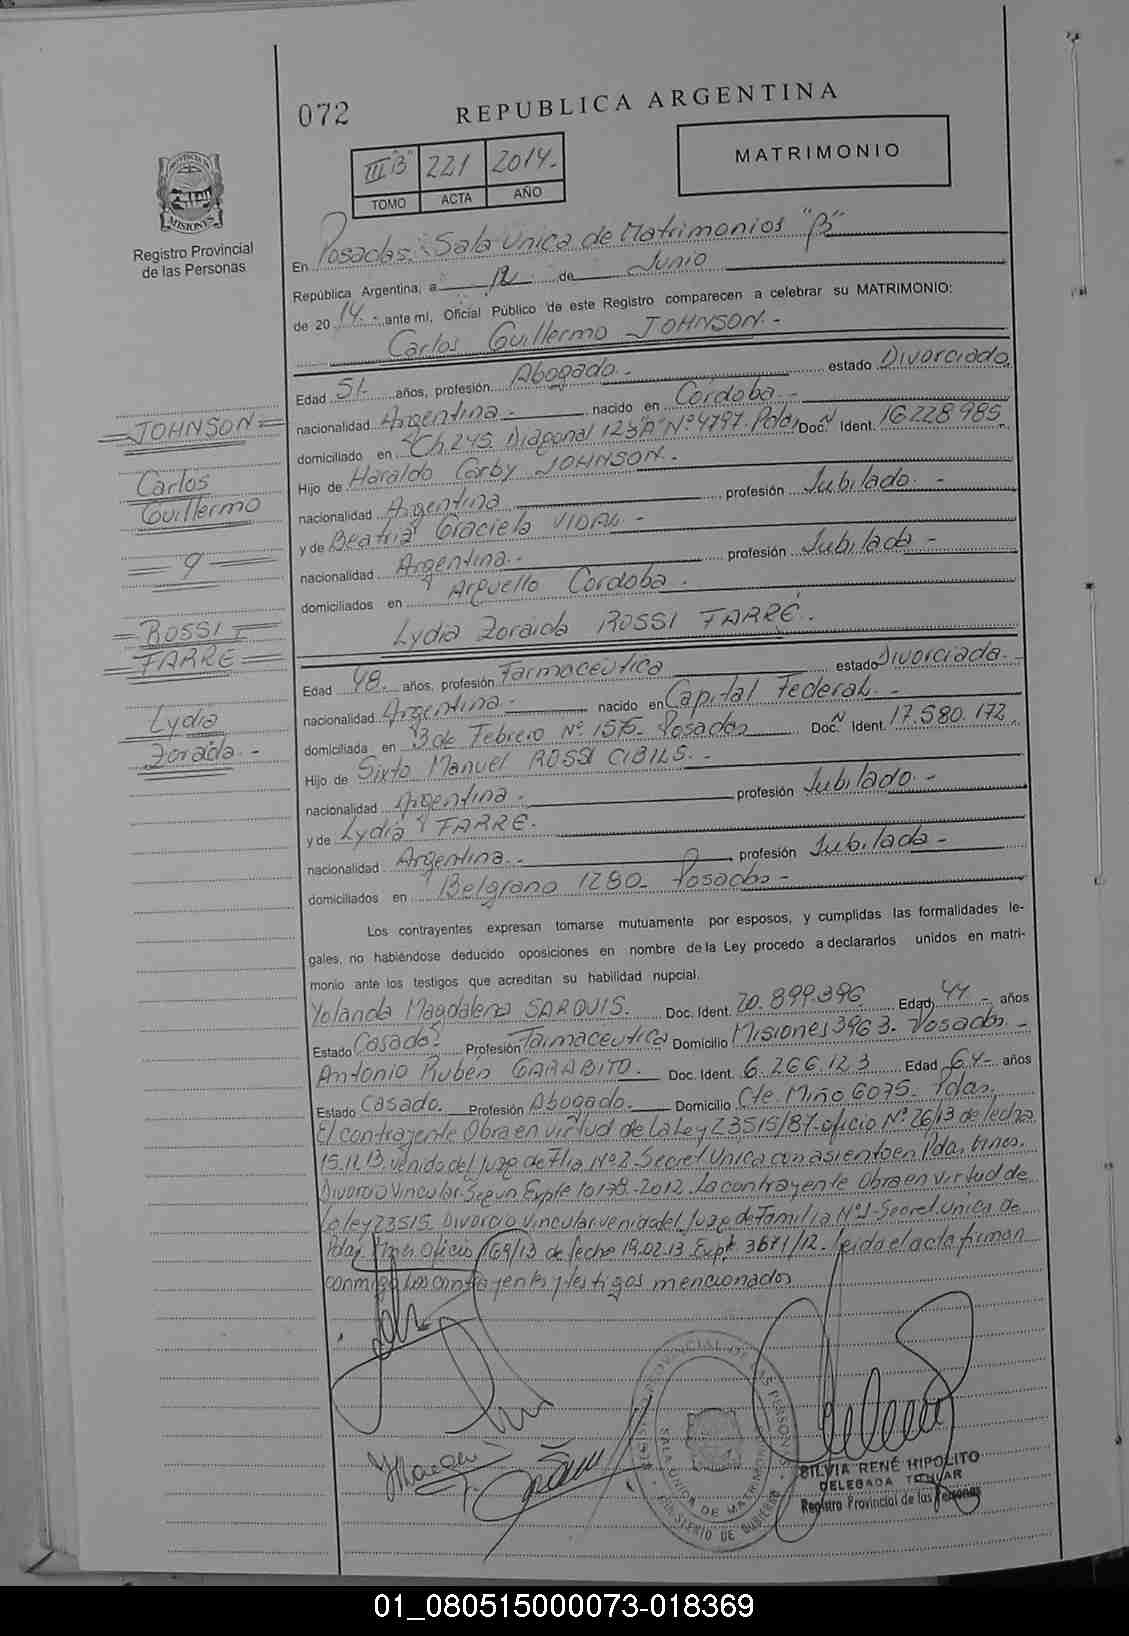 072
REPUBLICA ARGENTINA
III "B" 221 2014.-
TOMO ACTA AÑO
MATRIMONIO
PROVINCIA DE
MISIONES
Registro Provincial
de las Personas
En Posadas. Sala Unica de Matrimonios "B"
República Argentina, a 12 de Junio
de 20 14.- ante mí, Oficial Público de este Registro comparecen a celebrar su MATRIMONIO:
Carlos Guillermo JOHNSON.-
Edad 51.- años, profesión Abogado.- estado Divorciado.
nacionalidad Argentina.- nacido en Cordoba.-
domiciliado en Ch. 245. Diagonal 123 "A" Nº 4797. Pdas. Doc. N Ident. 16.228.985.-
Hijo de Haraldo Corby JOHNSON.-
nacionalidad Argentina profesión Jubilado.-
y de Beatriz Graciela VIDAL-
nacionalidad Argentina.- profesión Jubilada-
domiciliados en Arguello Cordoba.
Lydia Zoraida ROSSI FARRÉ.
Edad 48. años, profesión Farmaceutica estado Divorciada.
nacionalidad Argentina.- nacido en Capital Federal.-
domiciliada en 3 de Febrero Nº 1575. Posadas Doc. N Ident. 17.580.172.
Hijo de Sixto Manuel ROSSI CIBILS.-
nacionalidad Argentina.- profesión Jubilado.-
y de Lydia FARRE.
nacionalidad Argentina.- profesión Jubilada-
domiciliados en Belgrano 1280- Posadas-
Los contrayentes expresan tomarse mutuamente por esposos, y cumplidas las formalidades le-
gales, no habiéndose deducido oposiciones en nombre de la Ley procedo a declararlos unidos en matri-
monio ante los testigos que acreditan su habilidad nupcial.
Yolanda Magdalena SARQUIS. Doc. Ident. 20.899.396 Edad 44- años
Estado Casada. Profesión Farmaceutica Domicilio Misiones 3963. Posadas-
Antonio Ruben GARABITO. Doc. Ident. 6.266.123 Edad 64- años
Estado Casado. Profesión Abogado. Domicilio Cte. Miño 6075- Pdas.
El contrayente Obra en virtud de la Ley 23515/87-oficio Nº 26/13 de fecha
15.11.13. venido del Juzg. de Flia. Nº 2. Secret. Unica con asiento en Pdas, Mnes.
Divorcio Vincular-Segun Expte 10178-2012. La contrayente Obra en virtud de
la ley 23515. Divorcio vincular venida del Juzg. de Familia Nº 1-Secret. Unica de
Pdas, Mnes. Oficio 169/13 de fecha 19.02.13 Expt. 3671/12. leida el acta firman
conmigo los contrayentes y testigos mencionados
=JOHNSON=
Carlos
Guillermo
= y =
=ROSSI=
=FARRE=
Lydia
Zoraida.-
PROVINCIAL DE LAS PERSONAS
SALA UNICA DE MATRIMONIOS
MINISTERIO DE GOBIERNO
SILVIA RENÉ HIPOLITO
DELEGADA TITULAR
Registro Provincial de las Personas
01_080515000073-018369